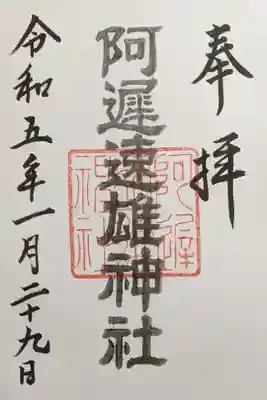 奉拝
阿遅速雄神社
令和五年一月二十九日